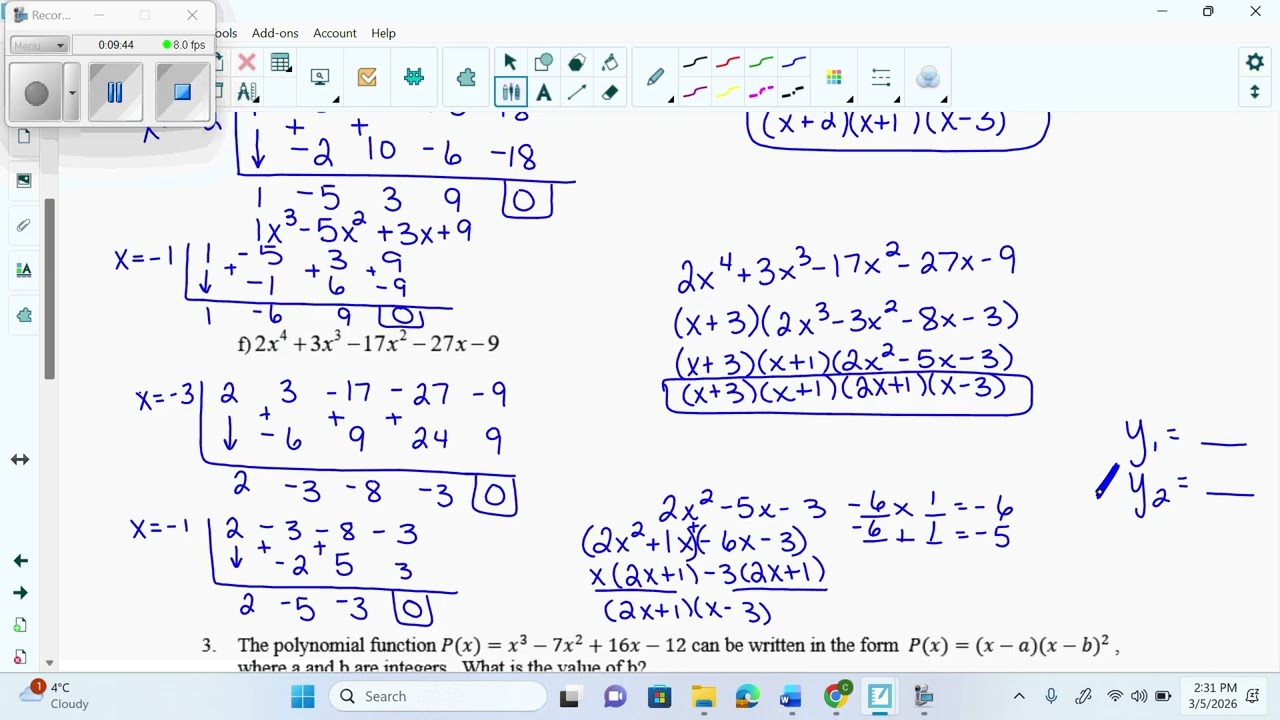 Recor...
Menu 0:09:44 8.0 fps
ools Add-ons Account Help
(x+2)(x+1)(x-3)
-2 10 -6 -18
1 -5 3 9 0
1x³-5x²+3x+9
x=-1 1 -5 3 9
+ -1 + 6 + -9
1 -6 9 0
f) 2x⁴ + 3x³ − 17x² − 27x − 9
x=-3 2 3 -17 -27 -9
+ + +
-6 9 24 9
2 -3 -8 -3 0
x=-1 2 -3 -8 -3
+ +
-2 5 3
2 -5 -3 0
2x⁴+3x³-17x²-27x-9
(x+3)(2x³-3x²-8x-3)
(x+3)(x+1)(2x²-5x-3)
(x+3)(x+1)(2x+1)(x-3)
y₁ = __
y₂ = __
2x²-5x-3 -6 x 1 = -6
(2x²+1x)+(-6x-3) -6 + 1 = -5
x(2x+1)-3(2x+1)
(2x+1)(x-3)
3. The polynomial function P(x) = x³ − 7x² + 16x − 12 can be written in the form P(x) = (x − a)(x − b)²,
where a and b are integers. What is the value of b?
1 4°C
Cloudy
Search
2:31 PM
3/5/2026